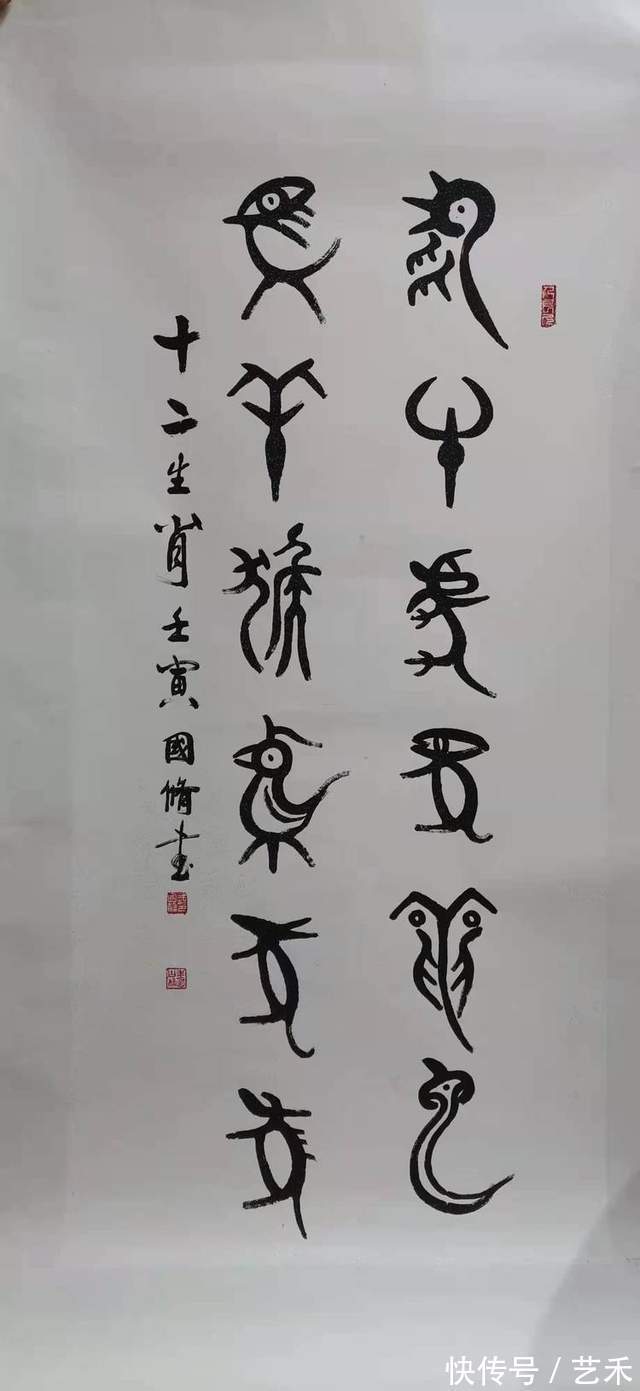 鼠牛虎兔龍蛇
馬羊猴雞狗豬
十二生肖壬寅國脩書
快传号／艺禾